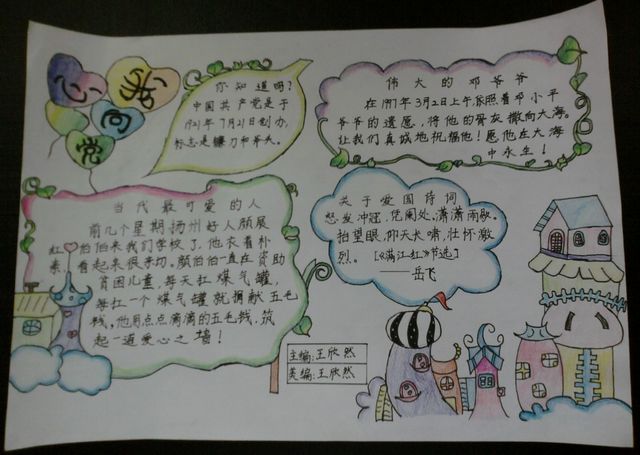 我心向党
你知道吗?
中国共产党是于
1921年7月21日创办,
标志是镰刀和斧头。
伟大的邓爷爷
在1997年3月2日上午,依照着邓小平
爷爷的遗愿,将他的骨灰撒向大海。
让我们真诚地祝福他!愿他在大海
中永生!
当代最可爱的人
前几个星期,扬州好人颜展
红伯伯来我们学校了,他衣着朴
素看起来很亲切。颜伯伯一直在资助
贫困儿童,每天扛煤气罐,
每扛一个煤气罐就捐献五毛
钱,他用点点滴滴的五毛钱,筑
起一道爱心之墙!
关于爱国诗词
怒发冲冠,凭阑处、潇潇雨歇。
抬望眼,仰天长啸,壮怀激
烈。[《满江红》节选]
——岳飞
主编:王欣然
美编:王欣然